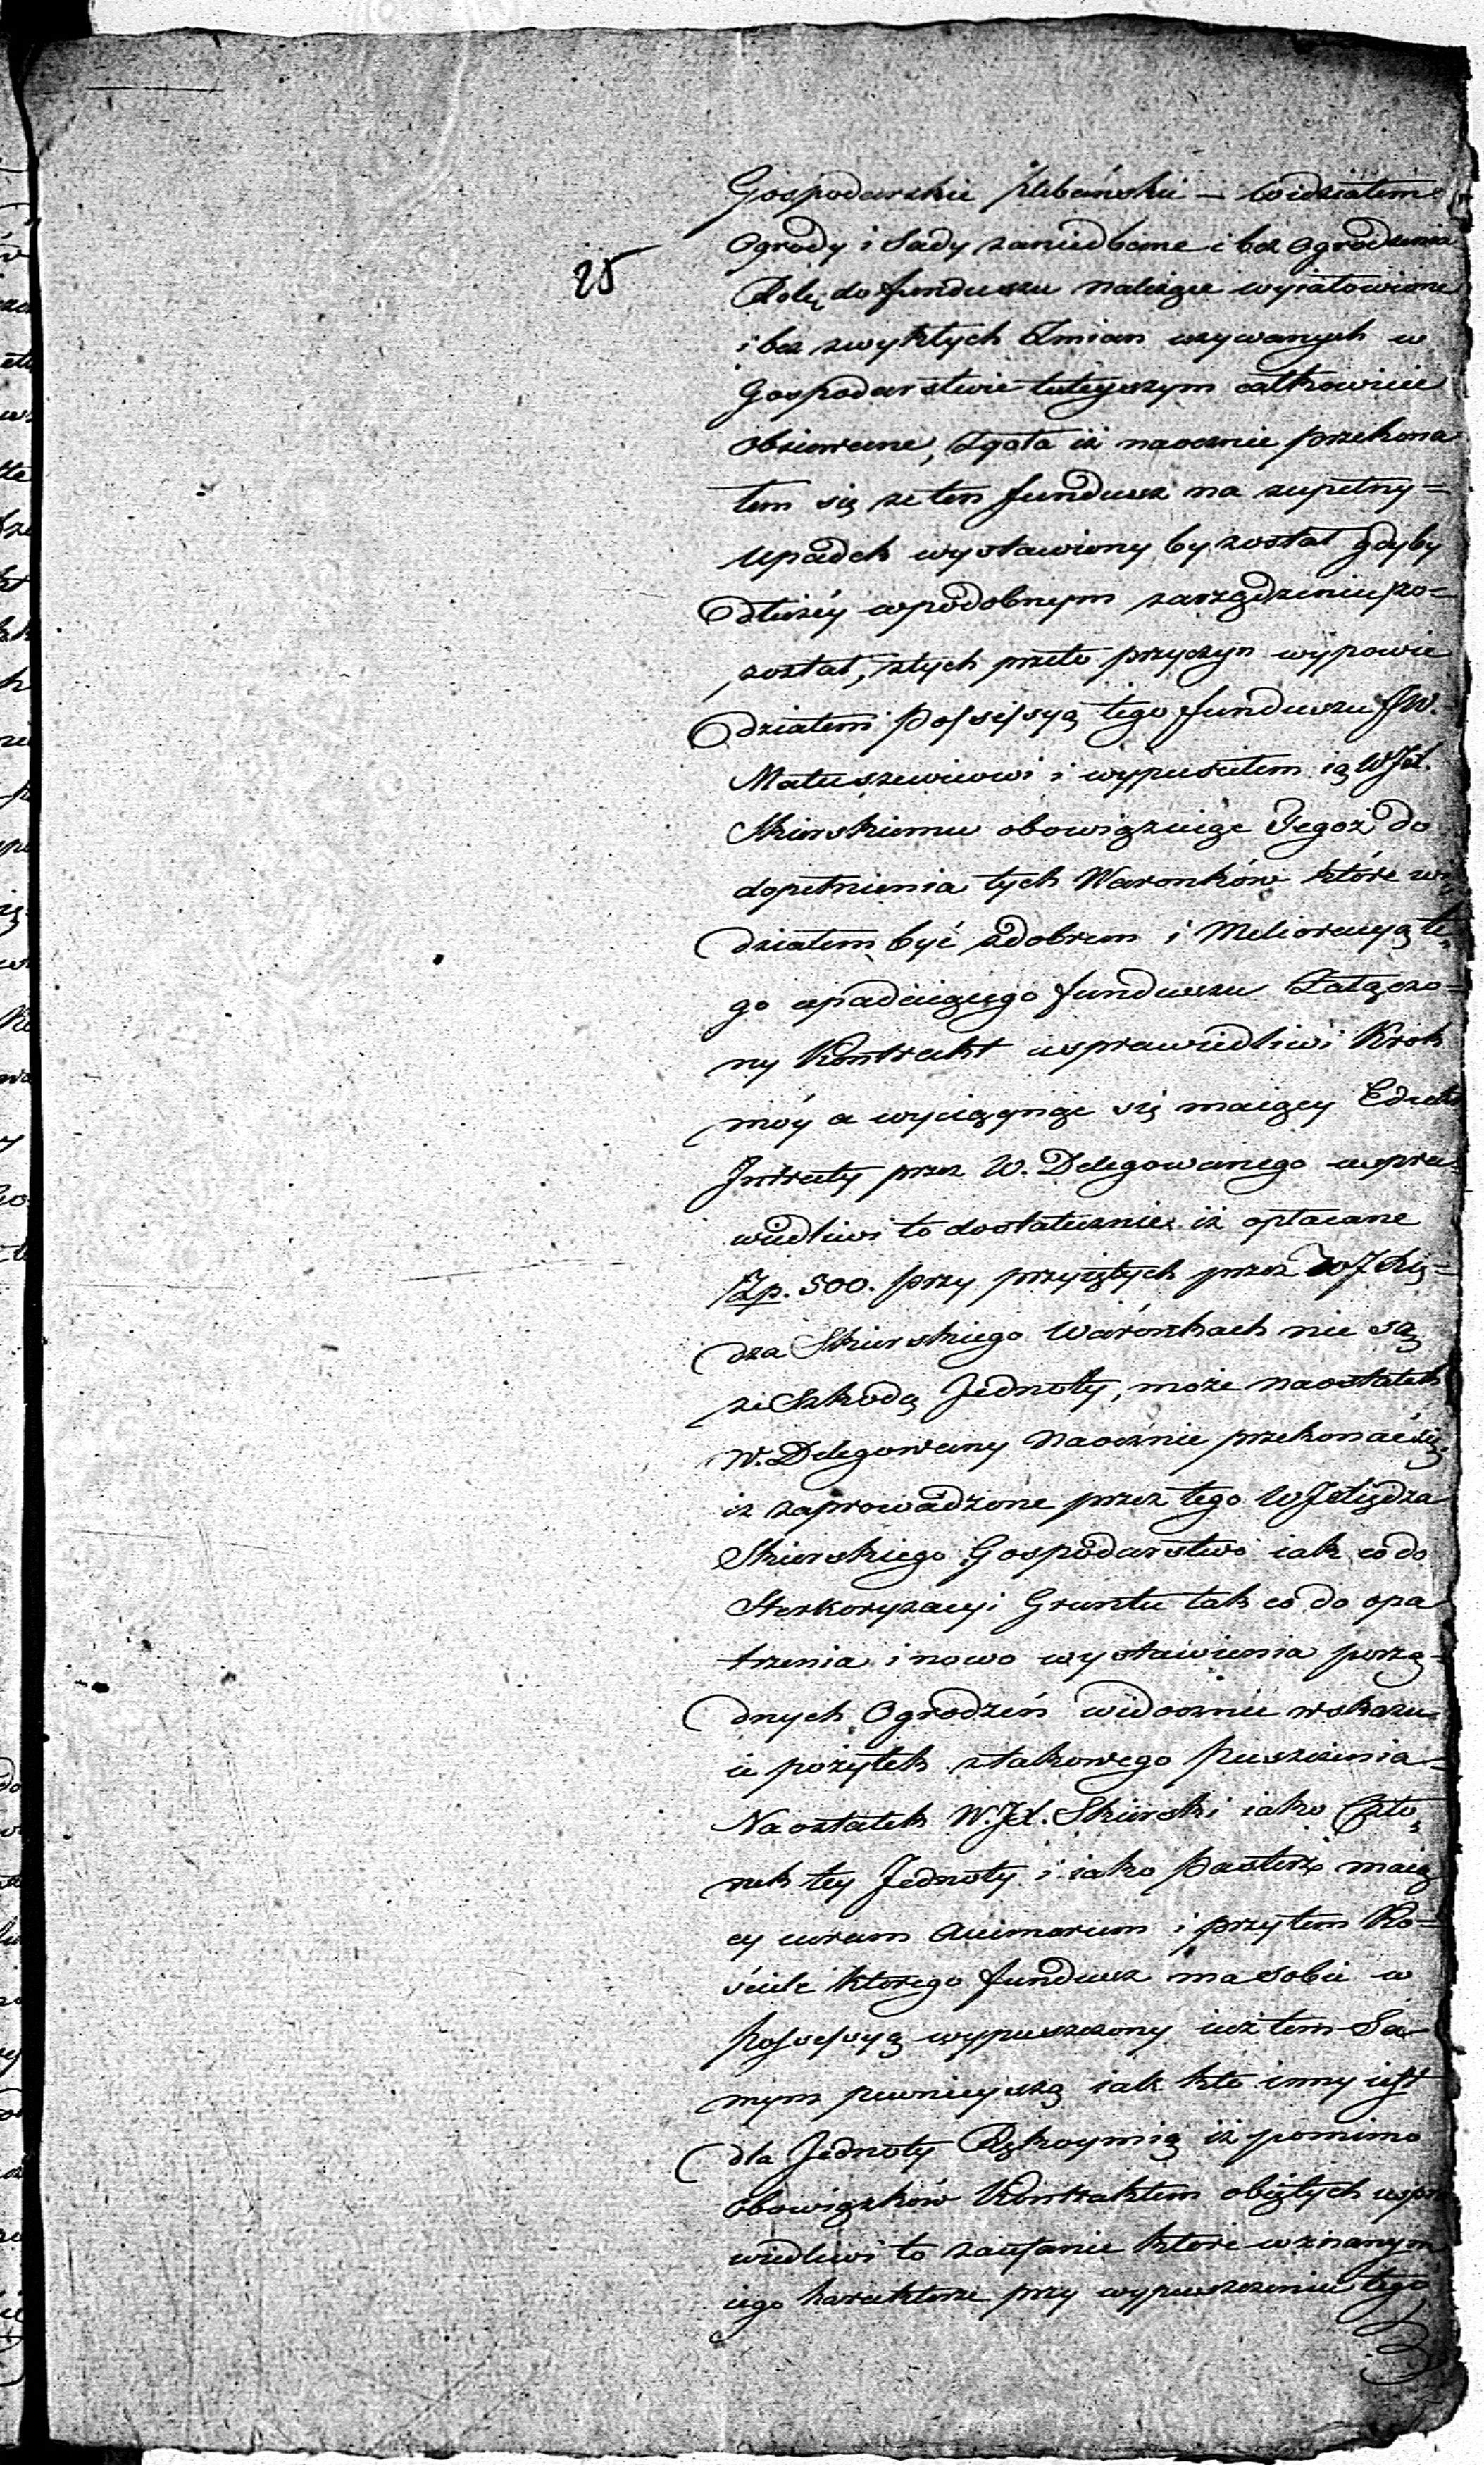 Gospodarskie plebańskie — widziałem
Ogrody i Sady zaniedbane i bez Ogrodzenia
25
Rolę do funduszu należące wyiałowione
i bez zwykłych Zmian używanych w
Gospodarstwie tuteyszym całkowicie
obsiewane, Zgoła iż naocznie przekona
łem się że ten fundusz na zupełny=
upadek wystawiony by został gdyby
dłużéy w podobnym zarządzeniu po=
został, z tych przeto przyczyn wypowie
działem Possessyą tego funduszu JW.
Matuszewiczowi i wypuściłem ią WJX.
Skierskiemu obowiązuiąc Jegoż do
dopełnienia tych Warunków które wi
działem być z dobrem i Melioracyą te,
go upadaiącego funduszu Załączo=
ny Kontrakt usprawiedliwi Krok
móy a wyciągnąć się maiący
Intraty przez W. Delegowanego uspra=
wiedliwi to dostatecznie iż opłacane
Zp. 500. przy przyiętych przez WJXię=
dza Skierskiego Warónkach nie są
ze Szkodą Jednoty, może naostatek
W. Delegowany Naocznie przekonać się
iż zaprowadzone przez tego WJXiędza
Skierskiego Gospodarstwo iak co do
Sterkoryzacyi Gruntu tak co do opa
trzenia i nowo wystawienia porzą=
dnych Ogrodzeń widocznie wskazu=
ie pożytek z takowego puszczenia=
Naostatek W.JX. Skierski iako Czło,
nek tey Jednoty i iako Pasterz maią
cy curam Animarum i przytem Ko=
ściele którego fundusz ma sobie w
Possessyą wypuszczony iuż tem Sa=
mym pewnieyszą iak kto inny iest
dla Jednoty Rękoymią iż pomimo
obowiązków Kontraktem obiętych uspra
wiedliwi to zaufanie które w znanym
iego harakterze przy wypuszczeniu tego